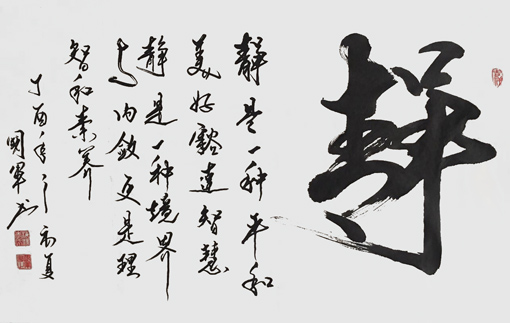 静
静是一种平和
美好豁達智慧
静是一种境界
与内敛更是理
智和素养
丁酉年之初夏
國軍书